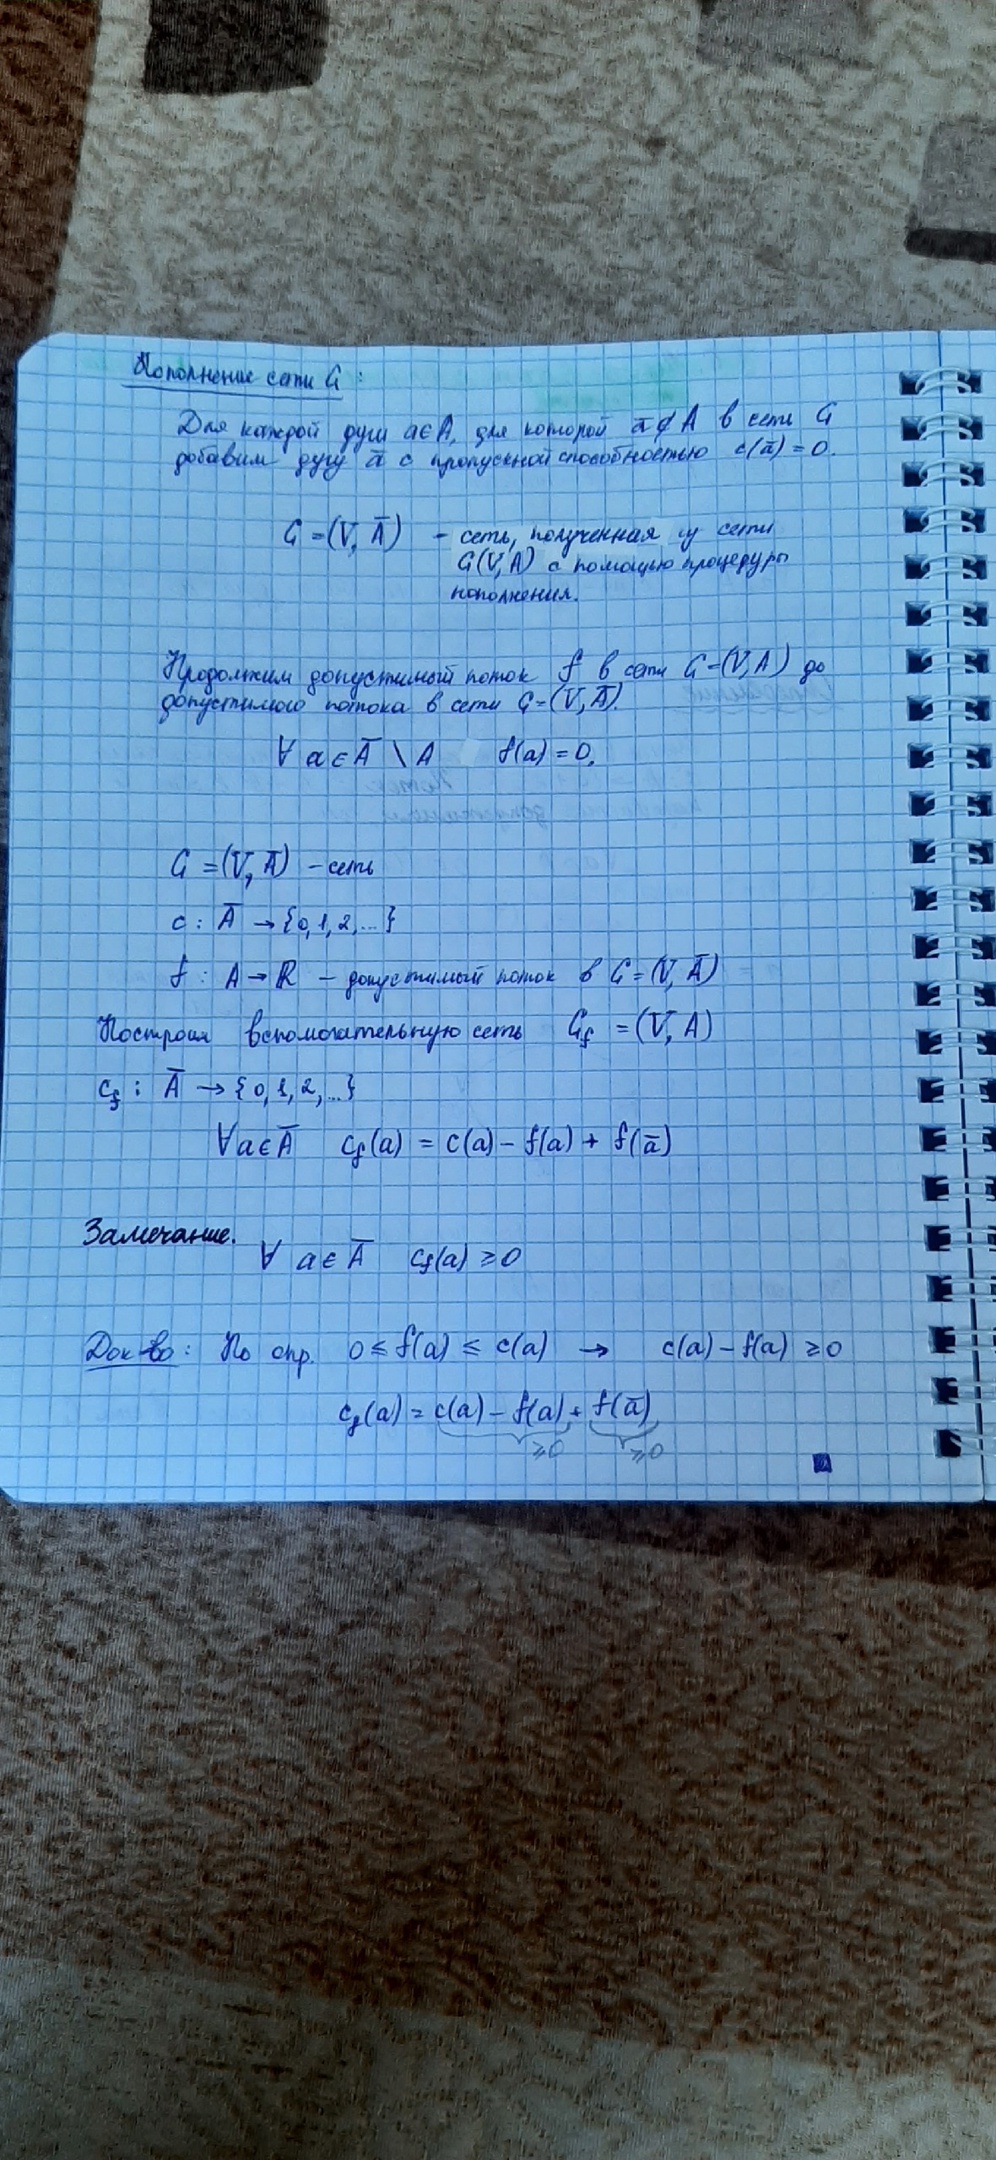 Пополнение сети G:
Для каждой дуги a∈A, для которой a̅∉A в сети G
добавим дугу a̅ с пропускной способностью c(a̅) = 0.
G = (V, A̅) - сеть, полученная из сети
G(V, A) с помощью процедуры
пополнения.
Продолжим допустимый поток f в сети G=(V, A) до
допустимого потока в сети G=(V, A̅).
∀ a∈A̅ \ A f(a) = 0.
G = (V, A̅) - сеть
c : A̅ → {0, 1, 2, ...}
f : A → ℝ - допустимый поток в G = (V, A̅)
Построим вспомогательную сеть G_f = (V, A)
c_f : A̅ → {0, 1, 2, ...}
∀a∈A̅ c_f(a) = c(a) - f(a) + f(a̅)
Замечание.
∀ a∈A̅ c_f(a) ≥ 0
Док-во: По опр. 0 ≤ f(a) ≤ c(a) → c(a) - f(a) ≥ 0
c_f(a) = c(a) - f(a) + f(a̅)
≥0 ≥0